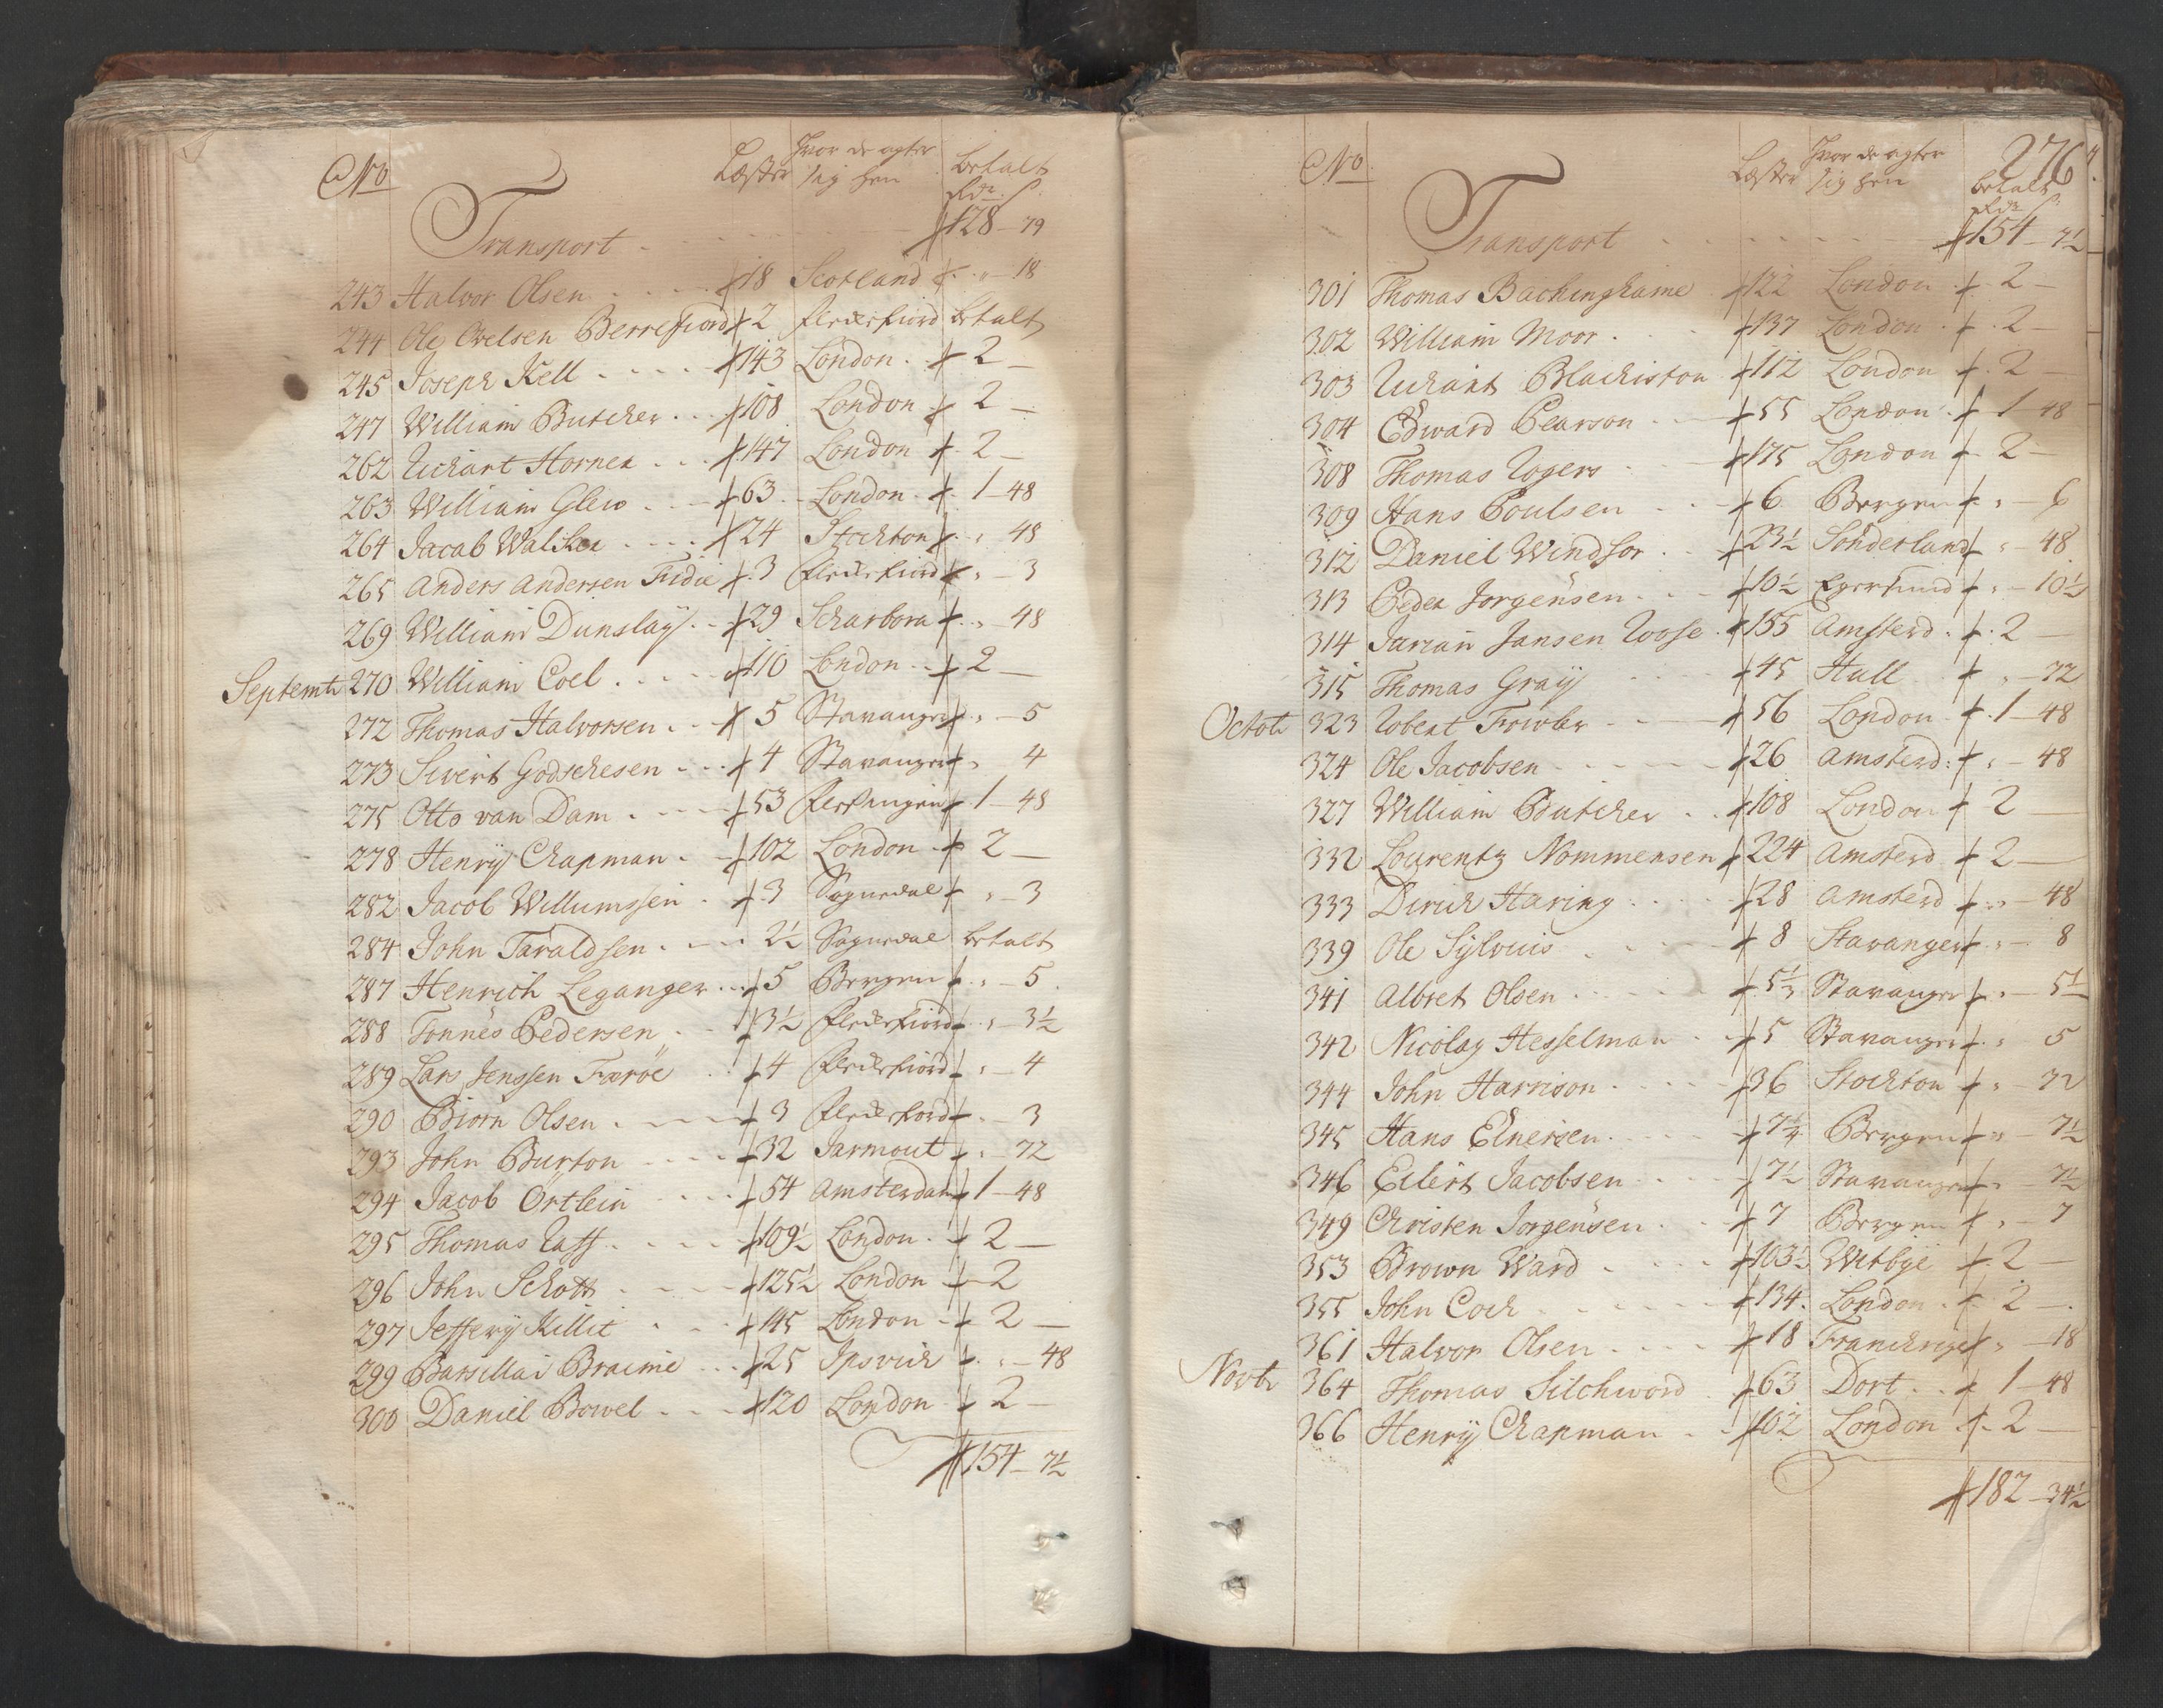 No Læster Hvor de agter betalt
sig hen Rdr. s.
Transport 128 - 79
243 Halvor Olsen 18 Scotland " - 18
244 Ole Oelsen Berrefiord 2 Flechefiord betalt
245 Joseph Kell 143 London 2 -
247 William Butcher 108 London 2 -
262 Richart Horner 147 London 2 -
263 William Glew 63 London 1 - 48
264 Jacob Walker 24 Stockton " 48
265 Anders Andersen Fidie 3 Flechefiord " - 3
269 William Dunslay 29 Scharbora " - 48
Septembr 270 William Coel 110 London 2 -
272 Thomas Halvorsen 5 Stavanger " - 5
273 Sivert Godschesen 4 Stavanger " 4
275 Otto van Dam 53 1 - 48
278 Henrÿ Chapman 102 London 2 -
282 Jacob Willumssen 3 Sognedal " - 3
284 John Taraldsen 2½ Sognedal betalt
287 Henrich Leganger 5 Bergen " - 5
288 Tonnes Pedersen 3½ Flechefiord " - 3½
289 Lars Jenssen Færöe 4 Flechefiord " - 4
290 Biorn Olsen 3 Flechefiord " - 3
293 John Burton 32 Jarmout " - 72
294 Jacob Örtlein 54 Amsterdam 1 - 48
295 Thomas Raff 109½ London 2 -
296 John Schott 125½ London 2
297 Jefferÿ Killit 145 London 2 -
299 Barsillai Braime 25 Ipsvich " - 48
300 Daniel Bowel 120 London 2 -
154 - 7½
276
No Læster Hvor de agter betalt
sig hen Rdr. s.
Transport 154 - 7½
301 Thomas Bachinghame 122 London 2 -
302 William Moor 137 London 2 -
303 Richart Blachiston 112 London 2 -
304 Edward Pearson 55 London 1 - 48
308 Thomas Rogers 175 London 2 -
309 Hans Poulsen 6 Bergen " - 6
312 Daniel Windsor 23½ Sonderland " 48
313 Peder Jorgensen 10½ Egersund " - 10½
314 Jurian Jansen Roose 155 Amsterd. 2 -
315 Thomas Graÿ 45 Hull " - 72
Octobr 323 Robert Fowler 56 London 1 - 48
324 Ole Jacobsen 26 Amsterd: " - 48
327 William Butcher 108 London 2 -
332 Lourentz Nommensen 224 Amsterd 2 -
333 Dirich Haring 28 Amsterd " - 48
339 Ole Sylvius 8 Stavanger " - 8
341 Albret Olsen 5½ Stavanger " - 5½
342 Nicolay Hesselman 5 Stavanger " 5
344 John Harrison 36 Stockton " 72
345 Hans Elnersen 7¼ Bergen " - 7½
346 Eilert Jacobsen 7½ Stavanger " - 7½
349 Christen Jorgensen 7 Bergen " - 7
353 Brown Ward 103½ Witbye 2 -
355 John Coch 134 London 2 -
361 Halvor Olsen 18 Franchrige " - 18
Novbr 364 Thomas Silchword 63 Dort 1 - 48
366 Henrÿ Chapman 102 London 2 -
182 - 34½